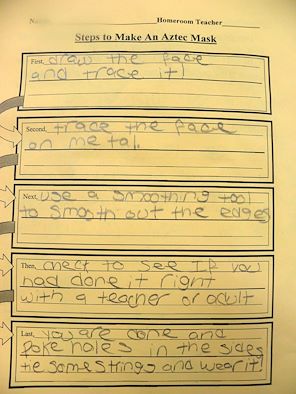 Homeroom Teacher
Steps to Make An Aztec Mask
First, draw the face
and trace it!
Second, trace the face
on metal.
Next, use a smoothing tool
to smooth out the edges
Then, check to see If you
had done it right
with a teacher or adult
Last, you are done and
poke holes in the sides
tie some strings and wear it!